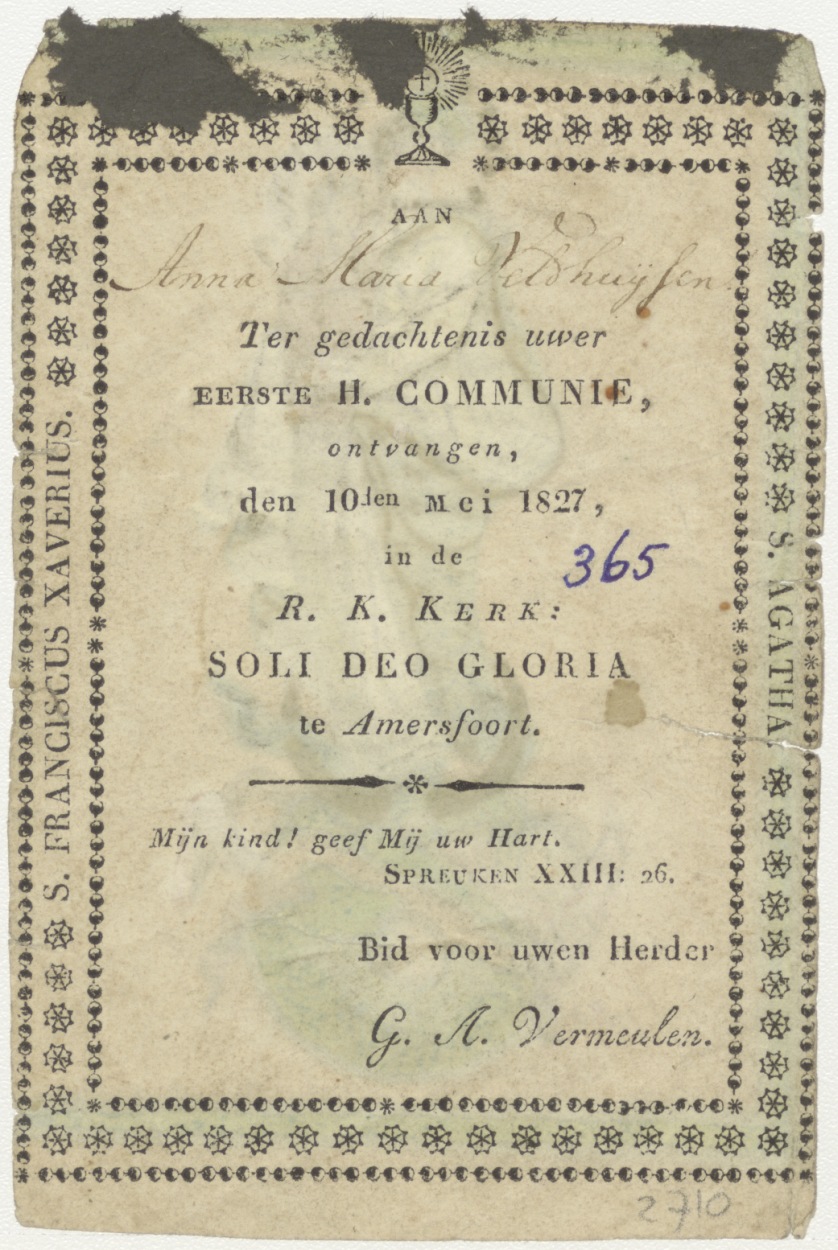 AAN
Anna Maria Veldhuijsen.
Ter gedachtenis uwer
EERSTE H. COMMUNIE,
ontvangen,
den 10den Mei 1827,
in de
365
R. K. KERK:
SOLI DEO GLORIA
te Amersfoort.
Mijn kind! geef Mij uw Hart.
SPREUKEN XXIII: 26.
Bid voor uwen Herder
G. A. Vermeulen.
S. FRANCISCUS XAVERIUS.
S. AGATHA.
2710